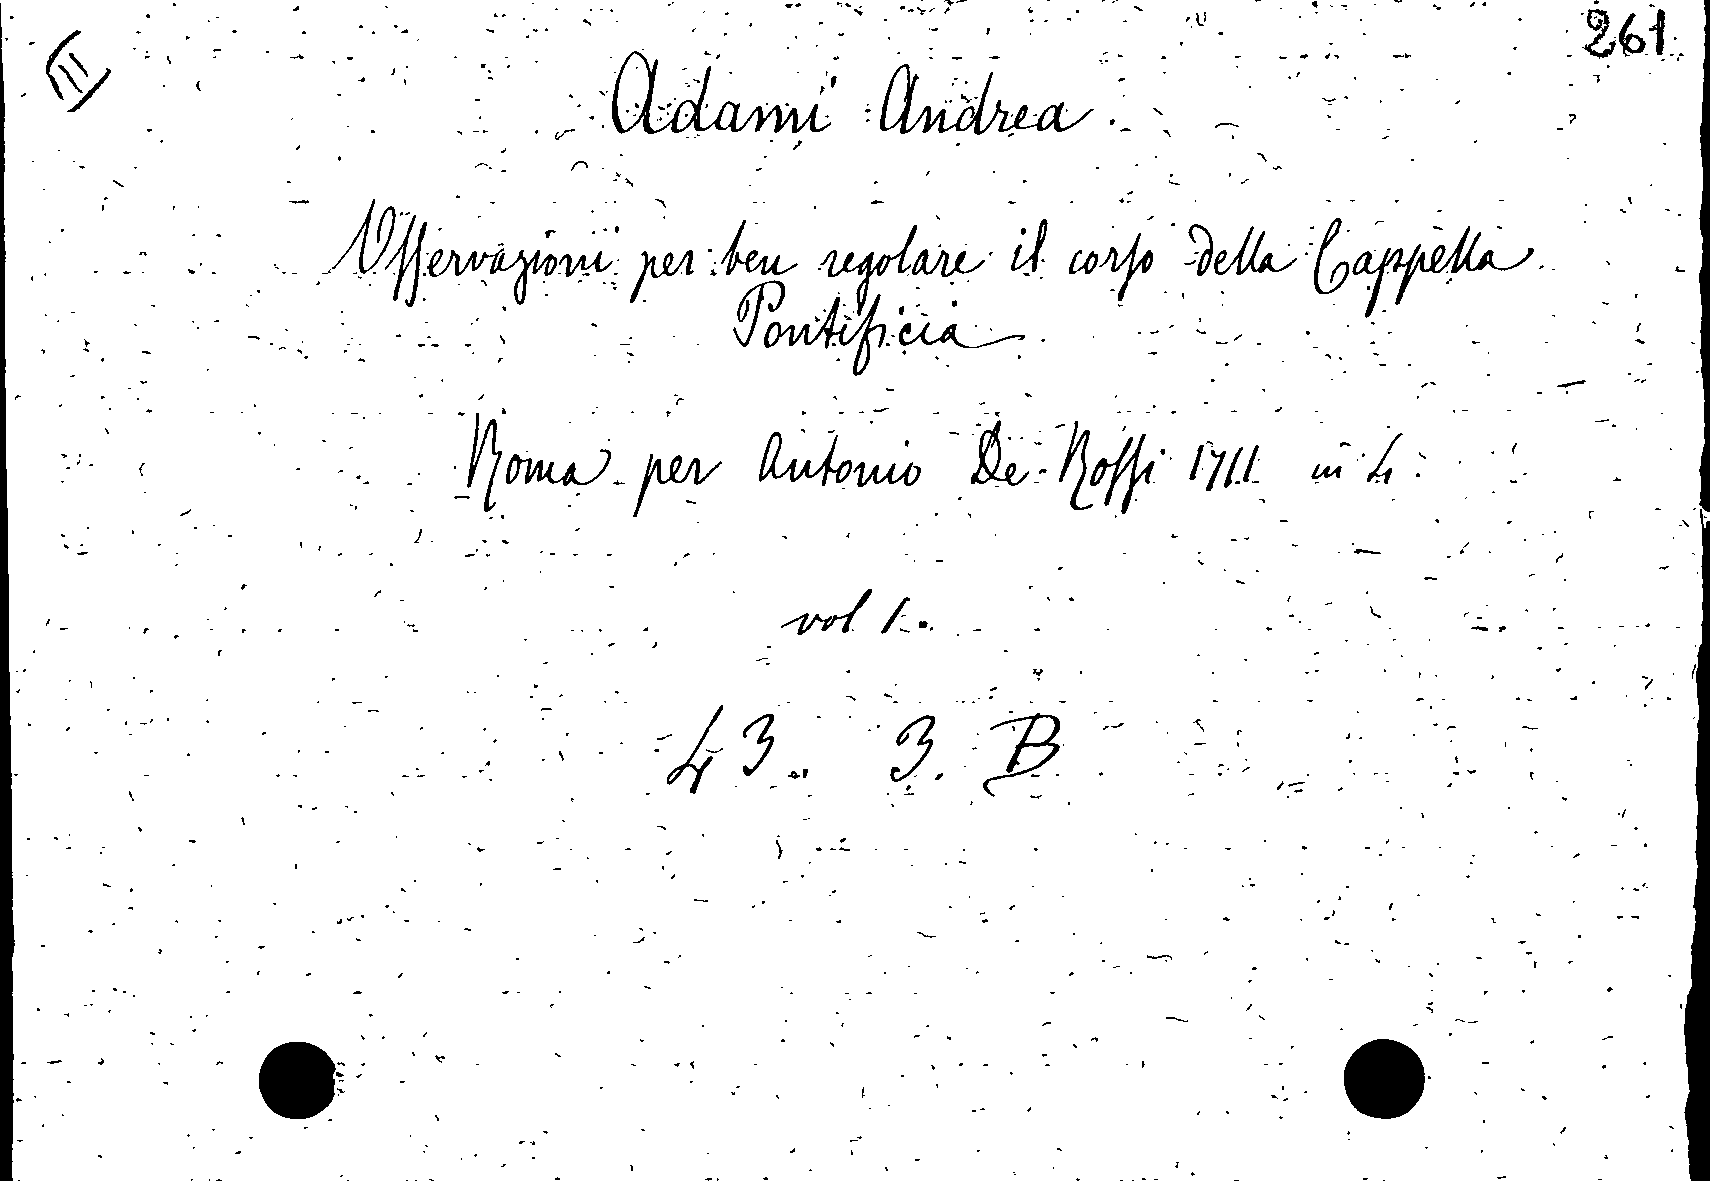 III
261
Adami Andrea
Osservazioni per ben regolare il corso della Cappella
Pontificia
Roma per Antonio De-Rossi 1711 in 4
vol 1.
43. 3. B